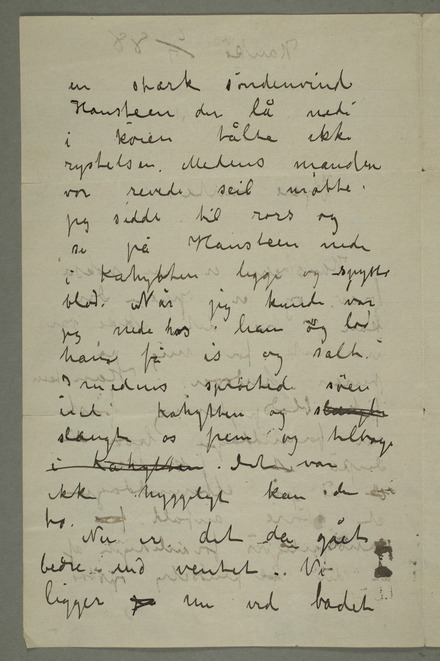 en stærk søndenvind
Hansteen der lå nedi
i køien tålte ikke
rystelsen. Medens manden
vor revede seil måtte
jeg sidde til rors og
se på Hansteen nede
i Kahytten ligge og spytte
blod. Når jeg kunde var
jeg nede hos ham og lod
ham få is og salt.
Imedens sprøited søen
ind i kahytten og slængte
slængte os frem og tilbage
i Kahytten. Det var
ikke hyggeligt kan du
tro.
Nu er det da gået
bedre end ventet.. Vi
ligger nu ved badet